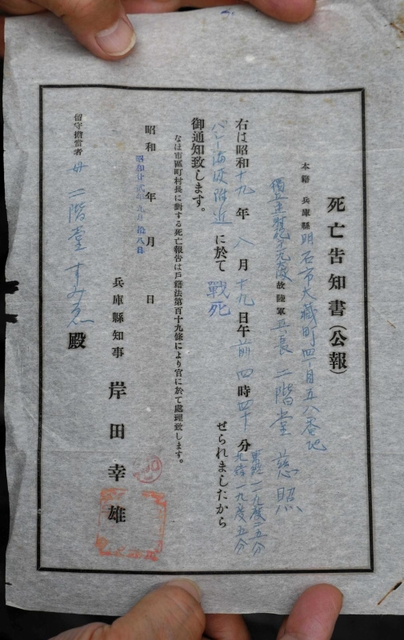 死亡告知書(公報)
本籍 兵庫縣 明石市大藏町四丁目五八番地
故陸軍 伍長 二階堂 慈照
右は昭和十九年八月十九日午前四時四十分
東経一一九度二五分
バシー海峡附近に於て戰死せられましたから
御通知致します。
なほ市區町村長に對する死亡報告は戸籍法第百十九條により官に於て處理致します。
昭和 年 月 日
兵庫縣知事 岸田幸雄
留守擔當者
母 二階堂 すみゑ 殿